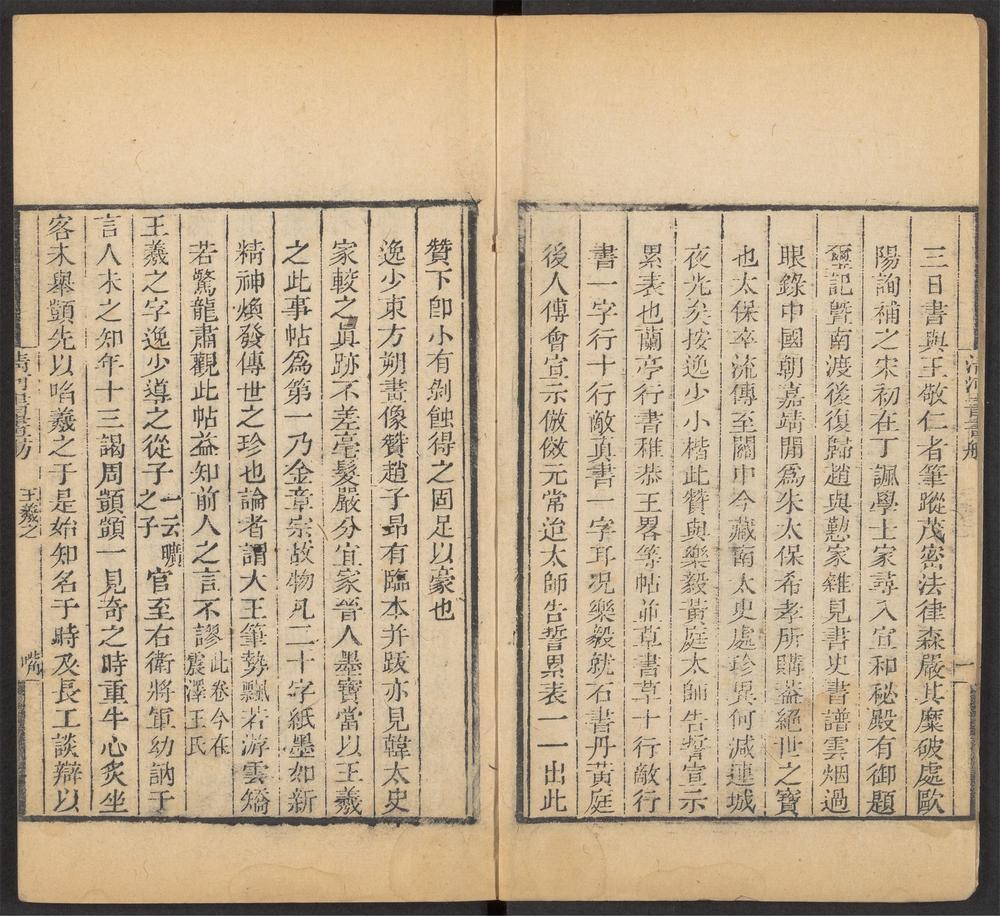 三日書與王敬仁者筆蹤茂密法律森嚴其糜破處歐
陽詢補之宋初在丁諷學士家尋入宣和秘殿有御題
璽記暨南渡後復歸趙與懃家雜見書史書譜雲烟過
眼錄中國朝嘉靖間爲朱太保希孝所購葢絕世之寶
也太保卒流傳至關中今藏南太史處珍異何減連城
夜光矣按逸少小楷此贊與樂毅黃庭太師告誓宣示
累表也蘭亭行書稚恭王畧等帖並草書草十行敵行
書一字行十行敵真書一字耳况樂毅就石書丹黃庭
後人傅會宣示倣傚元常迨太師告誓累表一一出此
贊下卽小有剝蝕得之固足以豪也
逸少東方朔畫像贊趙子昻有臨本并跋亦見韓太史
家較之眞跡不差毫髮嚴分宜家晉人墨寶當以王羲
之此事帖爲第一乃金章宗故物凡二十字紙墨如新
精神煥發傳世之珍也論者謂大王筆勢飄若游雲矯
若驚龍肅觀此帖益知前人之言不謬此卷今在震澤王氏
王羲之字逸少導之從子一云曠之子官至右衛將軍幼訥于
言人未之知年十三謁周顗顗一見奇之時重牛心炙坐
客未舉顗先以啗羲之于是始知名于時及長工談辯以
清河書畫舫
王羲之
嘴
一